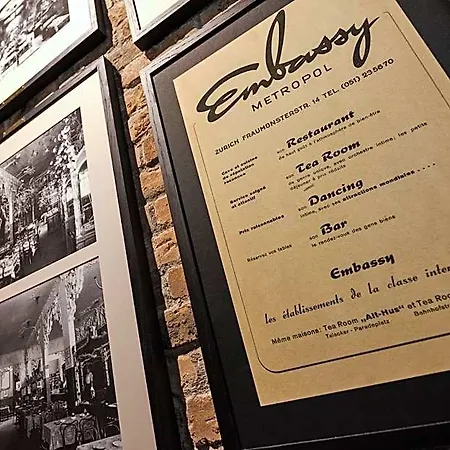 Embassy
METROPOL
ZURICH FRAUMÜNSTERSTR. 14 TEL. (051) 235670
Cave et cuisine
de réputation
reconnue
son Restaurant
de haut goût à l'atmosphère de bien-être
Service soigné
et attentif
son Tea Room
de genre unique, avec orchestre intime: les petits
déjeuner à prix réduits
Prix raisonnables
son Dancing
intime, avec ses attractions mondiales . . . .
Réservez vos tables
son Bar
le rendez-vous des gens biens
Embassy
les établissements de la classe inter
Même maisons: Tea Room „Alt-Hus“ et Tea Room
Talacker - Paradeplatz Bahnhofst